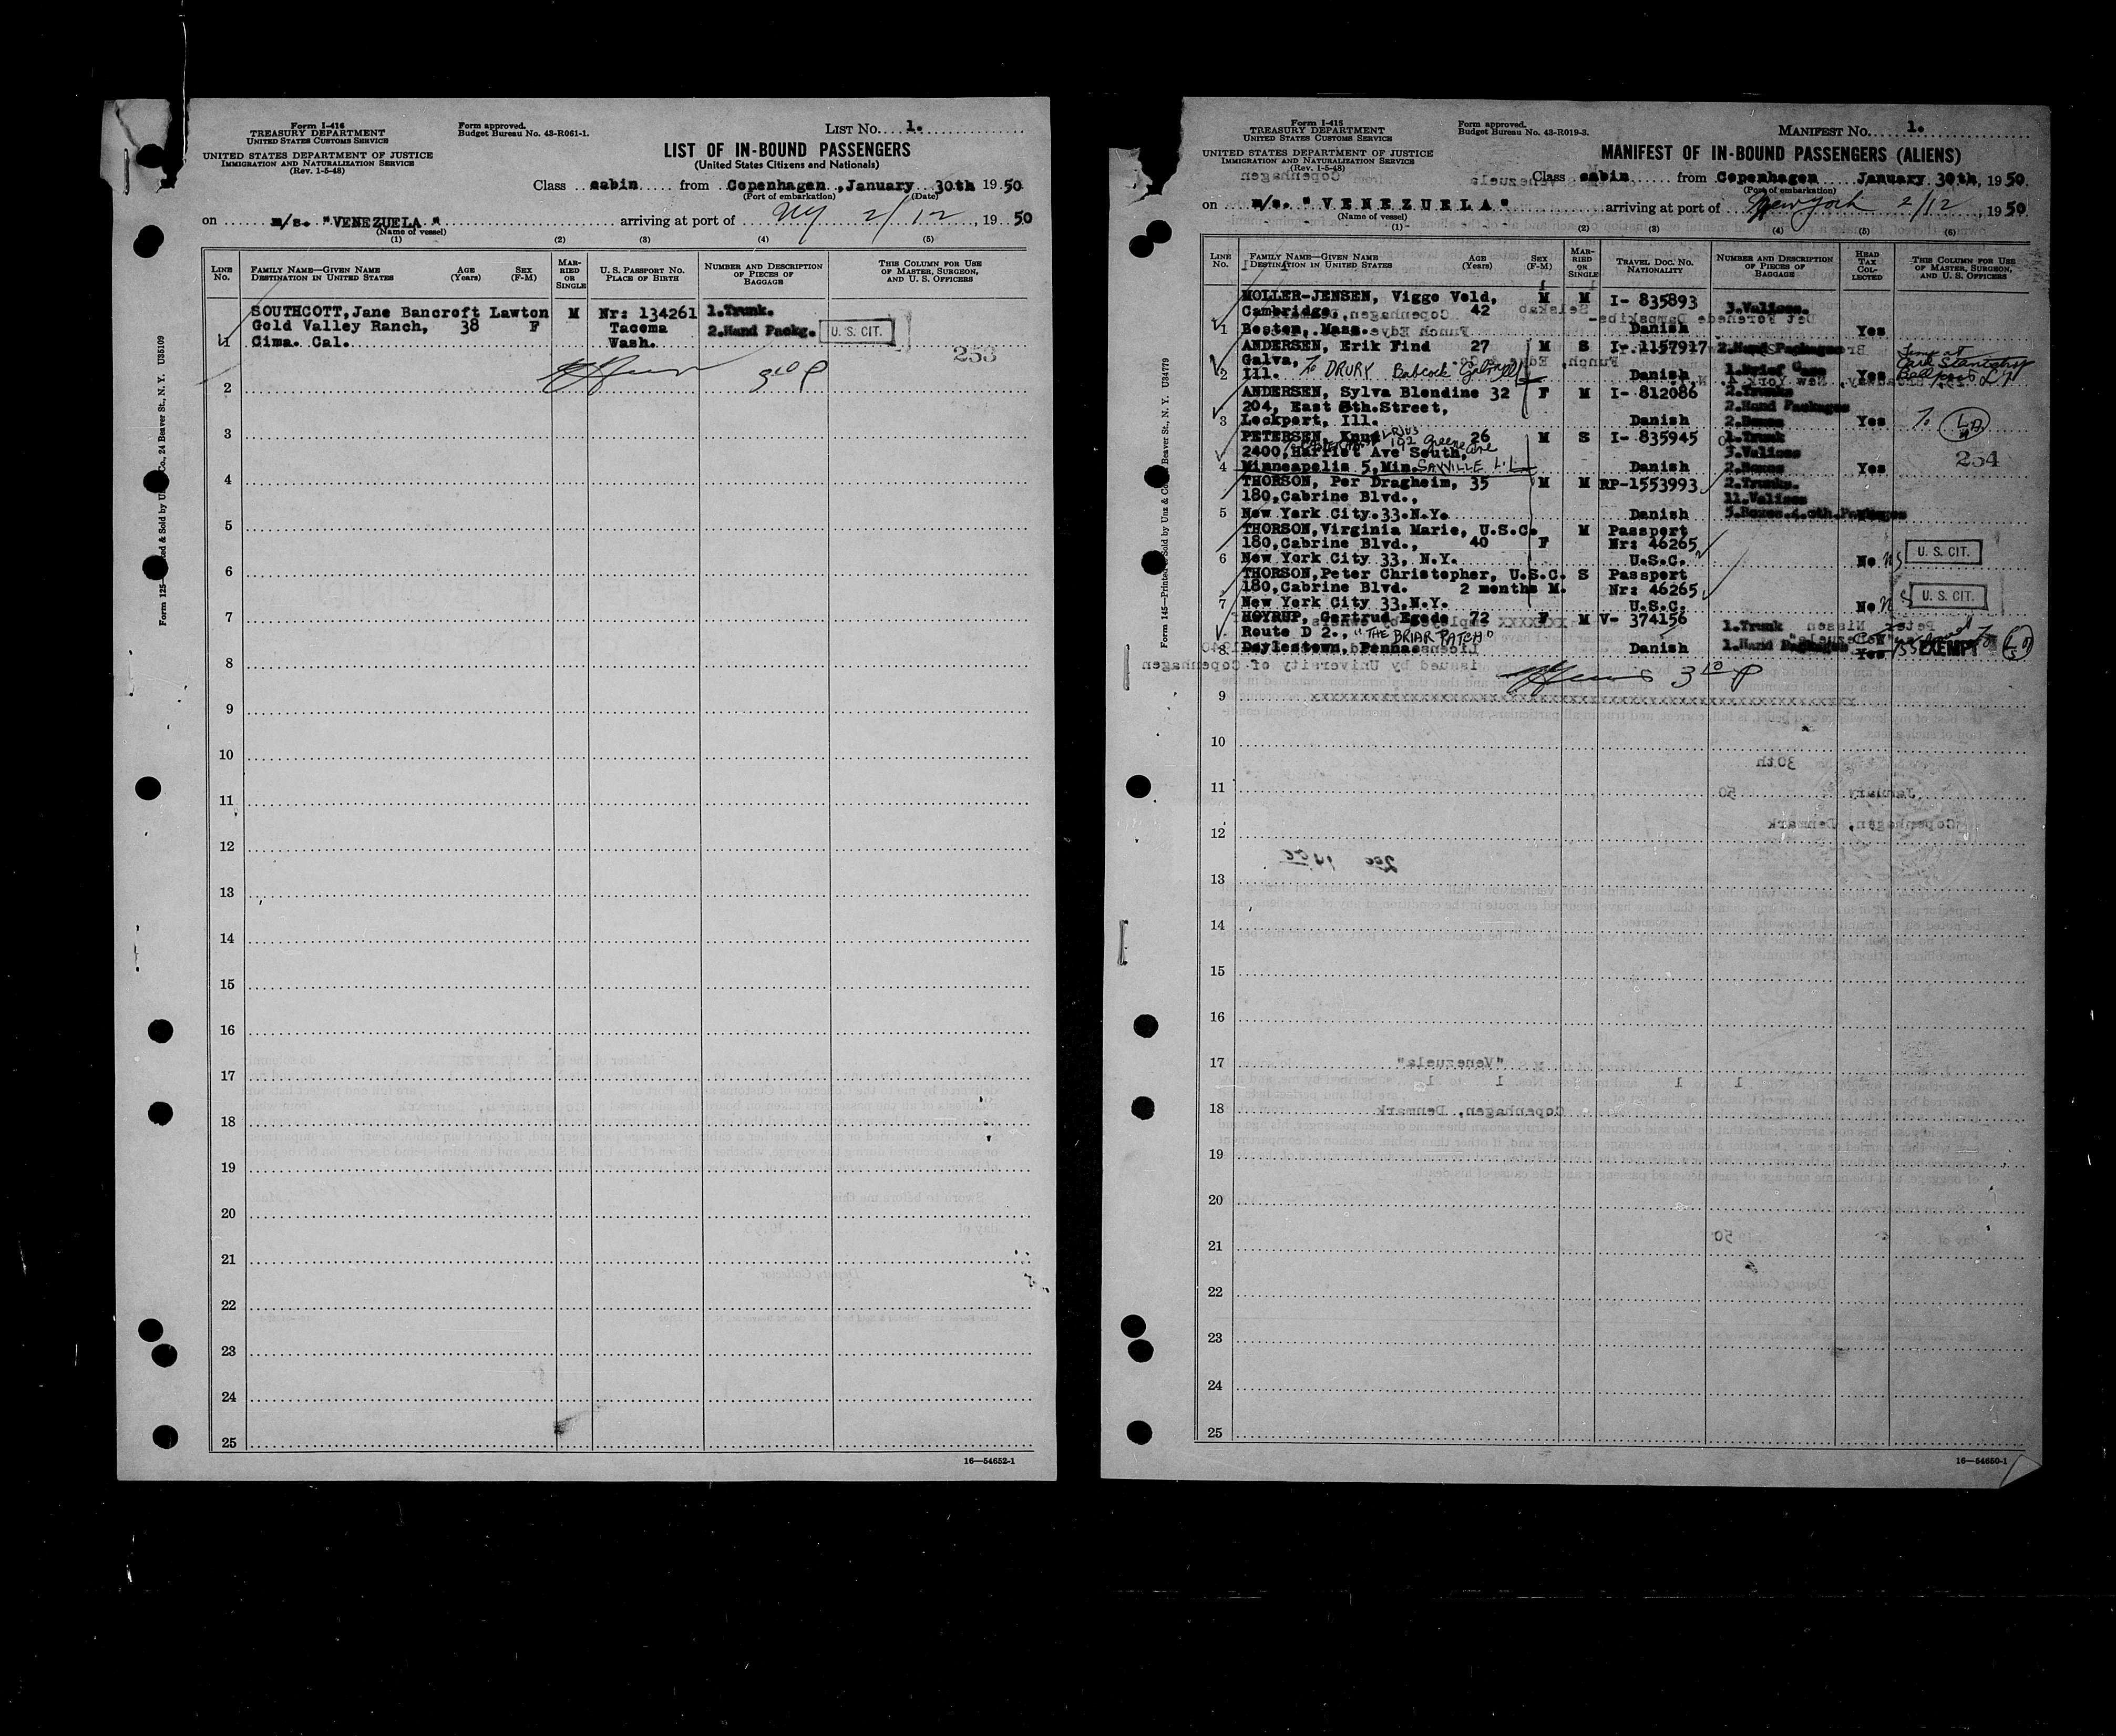 Form I-416
TREASURY DEPARTMENT
UNITED STATES CUSTOMS SERVICE
UNITED STATES DEPARTMENT OF JUSTICE
IMMIGRATION AND NATURALIZATION SERVICE
(Rev. 1-5-48)
Form approved.
Budget Bureau No. 43-R061-1.
LIST No. 1.
LIST OF IN-BOUND PASSENGERS
(United States Citizens and Nationals)
Class cabin from Copenhagen, January 30th 1950
(Port of embarkation) (Date)
on m/s. "VENEZUELA" arriving at port of NY 2/12, 1950
(Name of vessel)
(1) (2) (3) (4) (5)
LINE No. FAMILY NAME—GIVEN NAME DESTINATION IN UNITED STATES AGE (Years) SEX (F-M) MARRIED OR SINGLE U. S. PASSPORT NO. PLACE OF BIRTH NUMBER AND DESCRIPTION OF PIECES OF BAGGAGE THIS COLUMN FOR USE OF MASTER, SURGEON, AND U. S. OFFICERS
SOUTHCOTT, Jane Bancroft Lawton M Nr: 134261 1.Trunk.
Gold Valley Ranch, 38 F Tacoma 2.Hand Packg. U. S. CIT.
1 Cima. Cal. Wash.
253
2 3rd P
3
4
5
6
7
8
9
10
11
12
13
14
15
16
17
18
19
20
21
22
23
24
25
16—54652-1
Form I-415
TREASURY DEPARTMENT
UNITED STATES CUSTOMS SERVICE
UNITED STATES DEPARTMENT OF JUSTICE
IMMIGRATION AND NATURALIZATION SERVICE
(Rev. 1-5-48)
Form approved.
Budget Bureau No. 43-R019-3.
MANIFEST No. 1.
MANIFEST OF IN-BOUND PASSENGERS (ALIENS)
Class cabin from Copenhagen January 30th, 1950
(Port of embarkation)
on m/s. "VENEZUELA" arriving at port of New York 2/12, 1950
(Name of vessel)
(1) (2) (3) (4) (5) (6)
LINE No. FAMILY NAME—GIVEN NAME DESTINATION IN UNITED STATES AGE (Years) SEX (F-M) MARRIED OR SINGLE TRAVEL DOC. NO. NATIONALITY NUMBER AND DESCRIPTION OF PIECES OF BAGGAGE HEAD TAX COLLECTED THIS COLUMN FOR USE OF MASTER, SURGEON, AND U. S. OFFICERS
MOLLER-JENSEN, Viggo Vold, M M I- 835893 3.Valises.
Cambridge, 42
1 Boston, Mass. Danish Yes
ANDERSEN, Erik Find 27 M S I- 1157917 2.Hand Packages
Galva, DRURY Babcock
2 Ill. Danish 1.Brief Case Yes
ANDERSEN, Sylva Blendine 32 F M I- 812086 2.Trunks
204, East 8th.Street, 2.Hand Packages
3 Lockport, Ill. Danish 2.Boxes Yes
PETERSEN, Knud 26 M S I- 835945 1.Trunk
2400, Harriet Ave South, 192 Greene Ave 3.Valises
4 Minneapolis 5, Min. SAYVILLE L.I. Danish 2.Boxes Yes 254
THORSON, Per Dragheim, 35 M M RP-1553993 2.Trunks.
180,Cabrine Blvd., 11.Valises
5 New York City.33.N.Y. Danish 5.Boxes.4.oth.Packages
THORSON,Virginia Marie, U.S.C. M Passport
180,Cabrine Blvd., 40 F Nr: 46265
6 New York City 33, N.Y. U.S.C. No U. S. CIT.
THORSON,Peter Christopher, U.S.C. S Passport
180,Cabrine Blvd. 2 months M. Nr: 46265
7 New York City 33.N.Y. U.S.C. No U. S. CIT.
HOYRUP, Gertrud Egede 72 F M V- 374156 1.Trunk
Route D 2., "THE BRIAR PATCH"
8 Doylestown, Penna Danish 1.Hand Package Yes EXEMPT
3rd P
9
10
11
12
13
14
15
16
17
18
19
20
21
22
23
24
25
16—54650-1